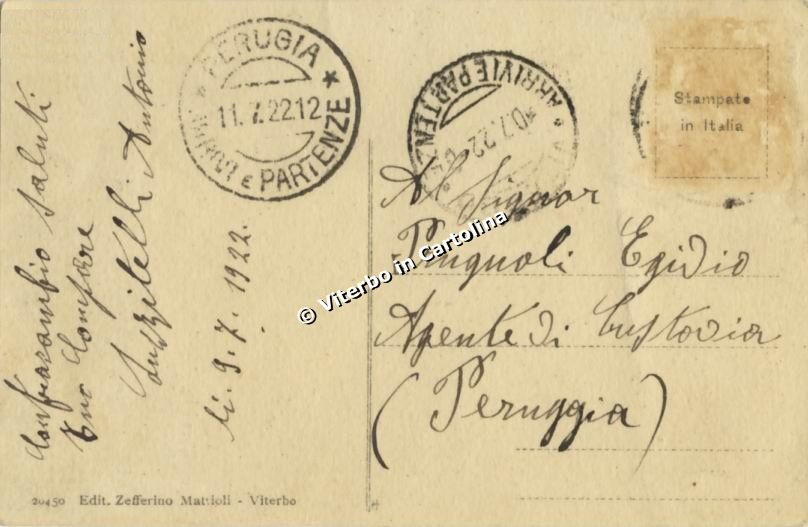 PERUGIA
11.7.22.12
ARRIVI E PARTENZE
ARRIVI E PARTENZE
0.7.22
Stampate
in Italia
Contracambio saluti
tuo Compare
Antonio
li. 9. 7. 1922.
Al Signor
Prugnoli Egidio
Agente di Custodia
(Peruggia)
© Viterbo in Cartolina
20450 Edit. Zefferino Mattioli - Viterbo